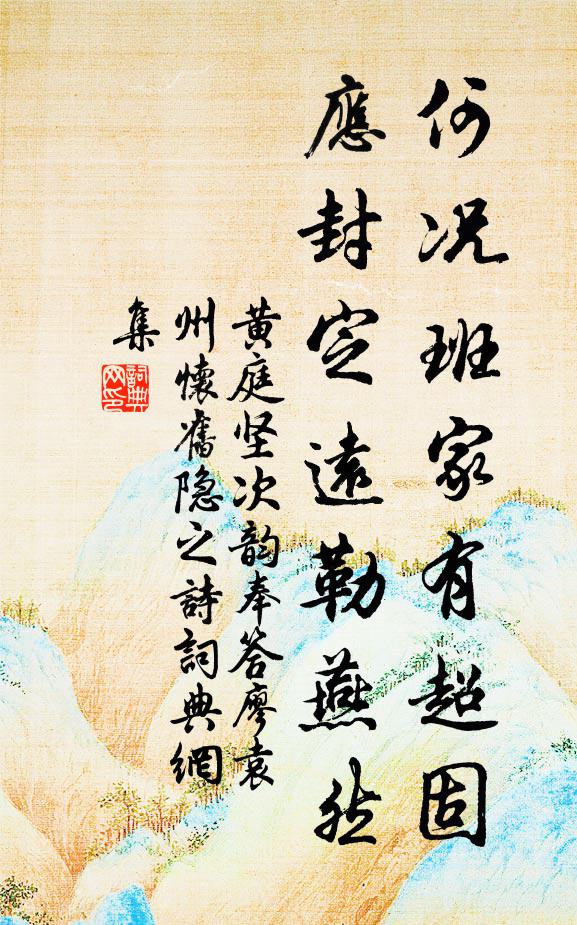 何况班家有超固
應封定遠勒燕然
黄庭坚次韵奉答廖袁
州懷舊隐之詩詞典網
集
詞典
网印